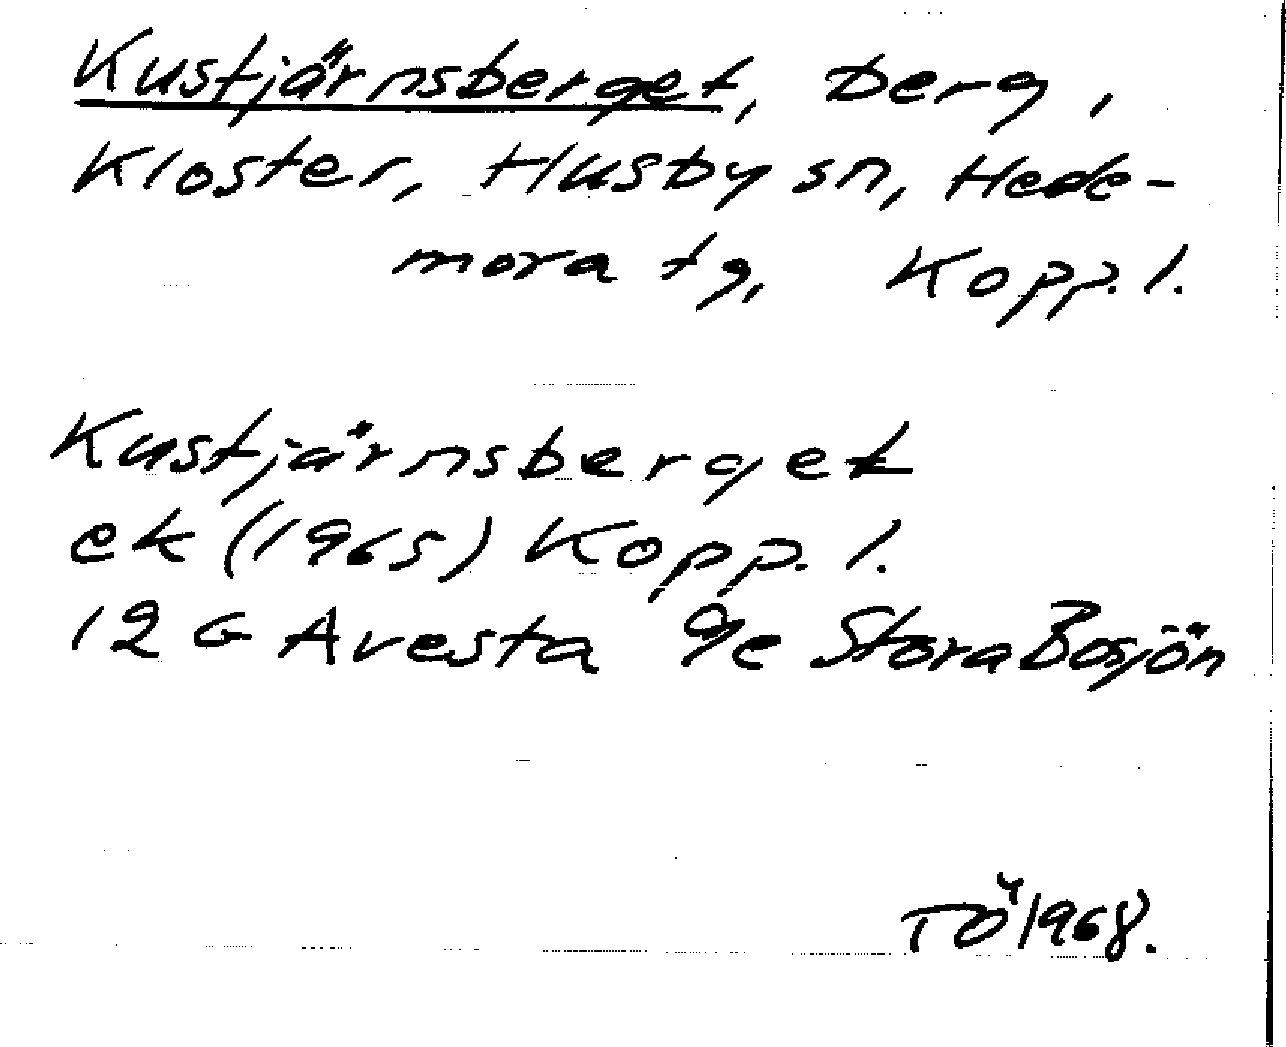 Kustjärnsberget, berg,
Kloster, Husby sn, Hede-
mora tg, Kopp. l.
Kustjärnsberget
ek (1965) Kopp. l.
12 G Avesta 9e Stora Bosjön
TÖ 1968.